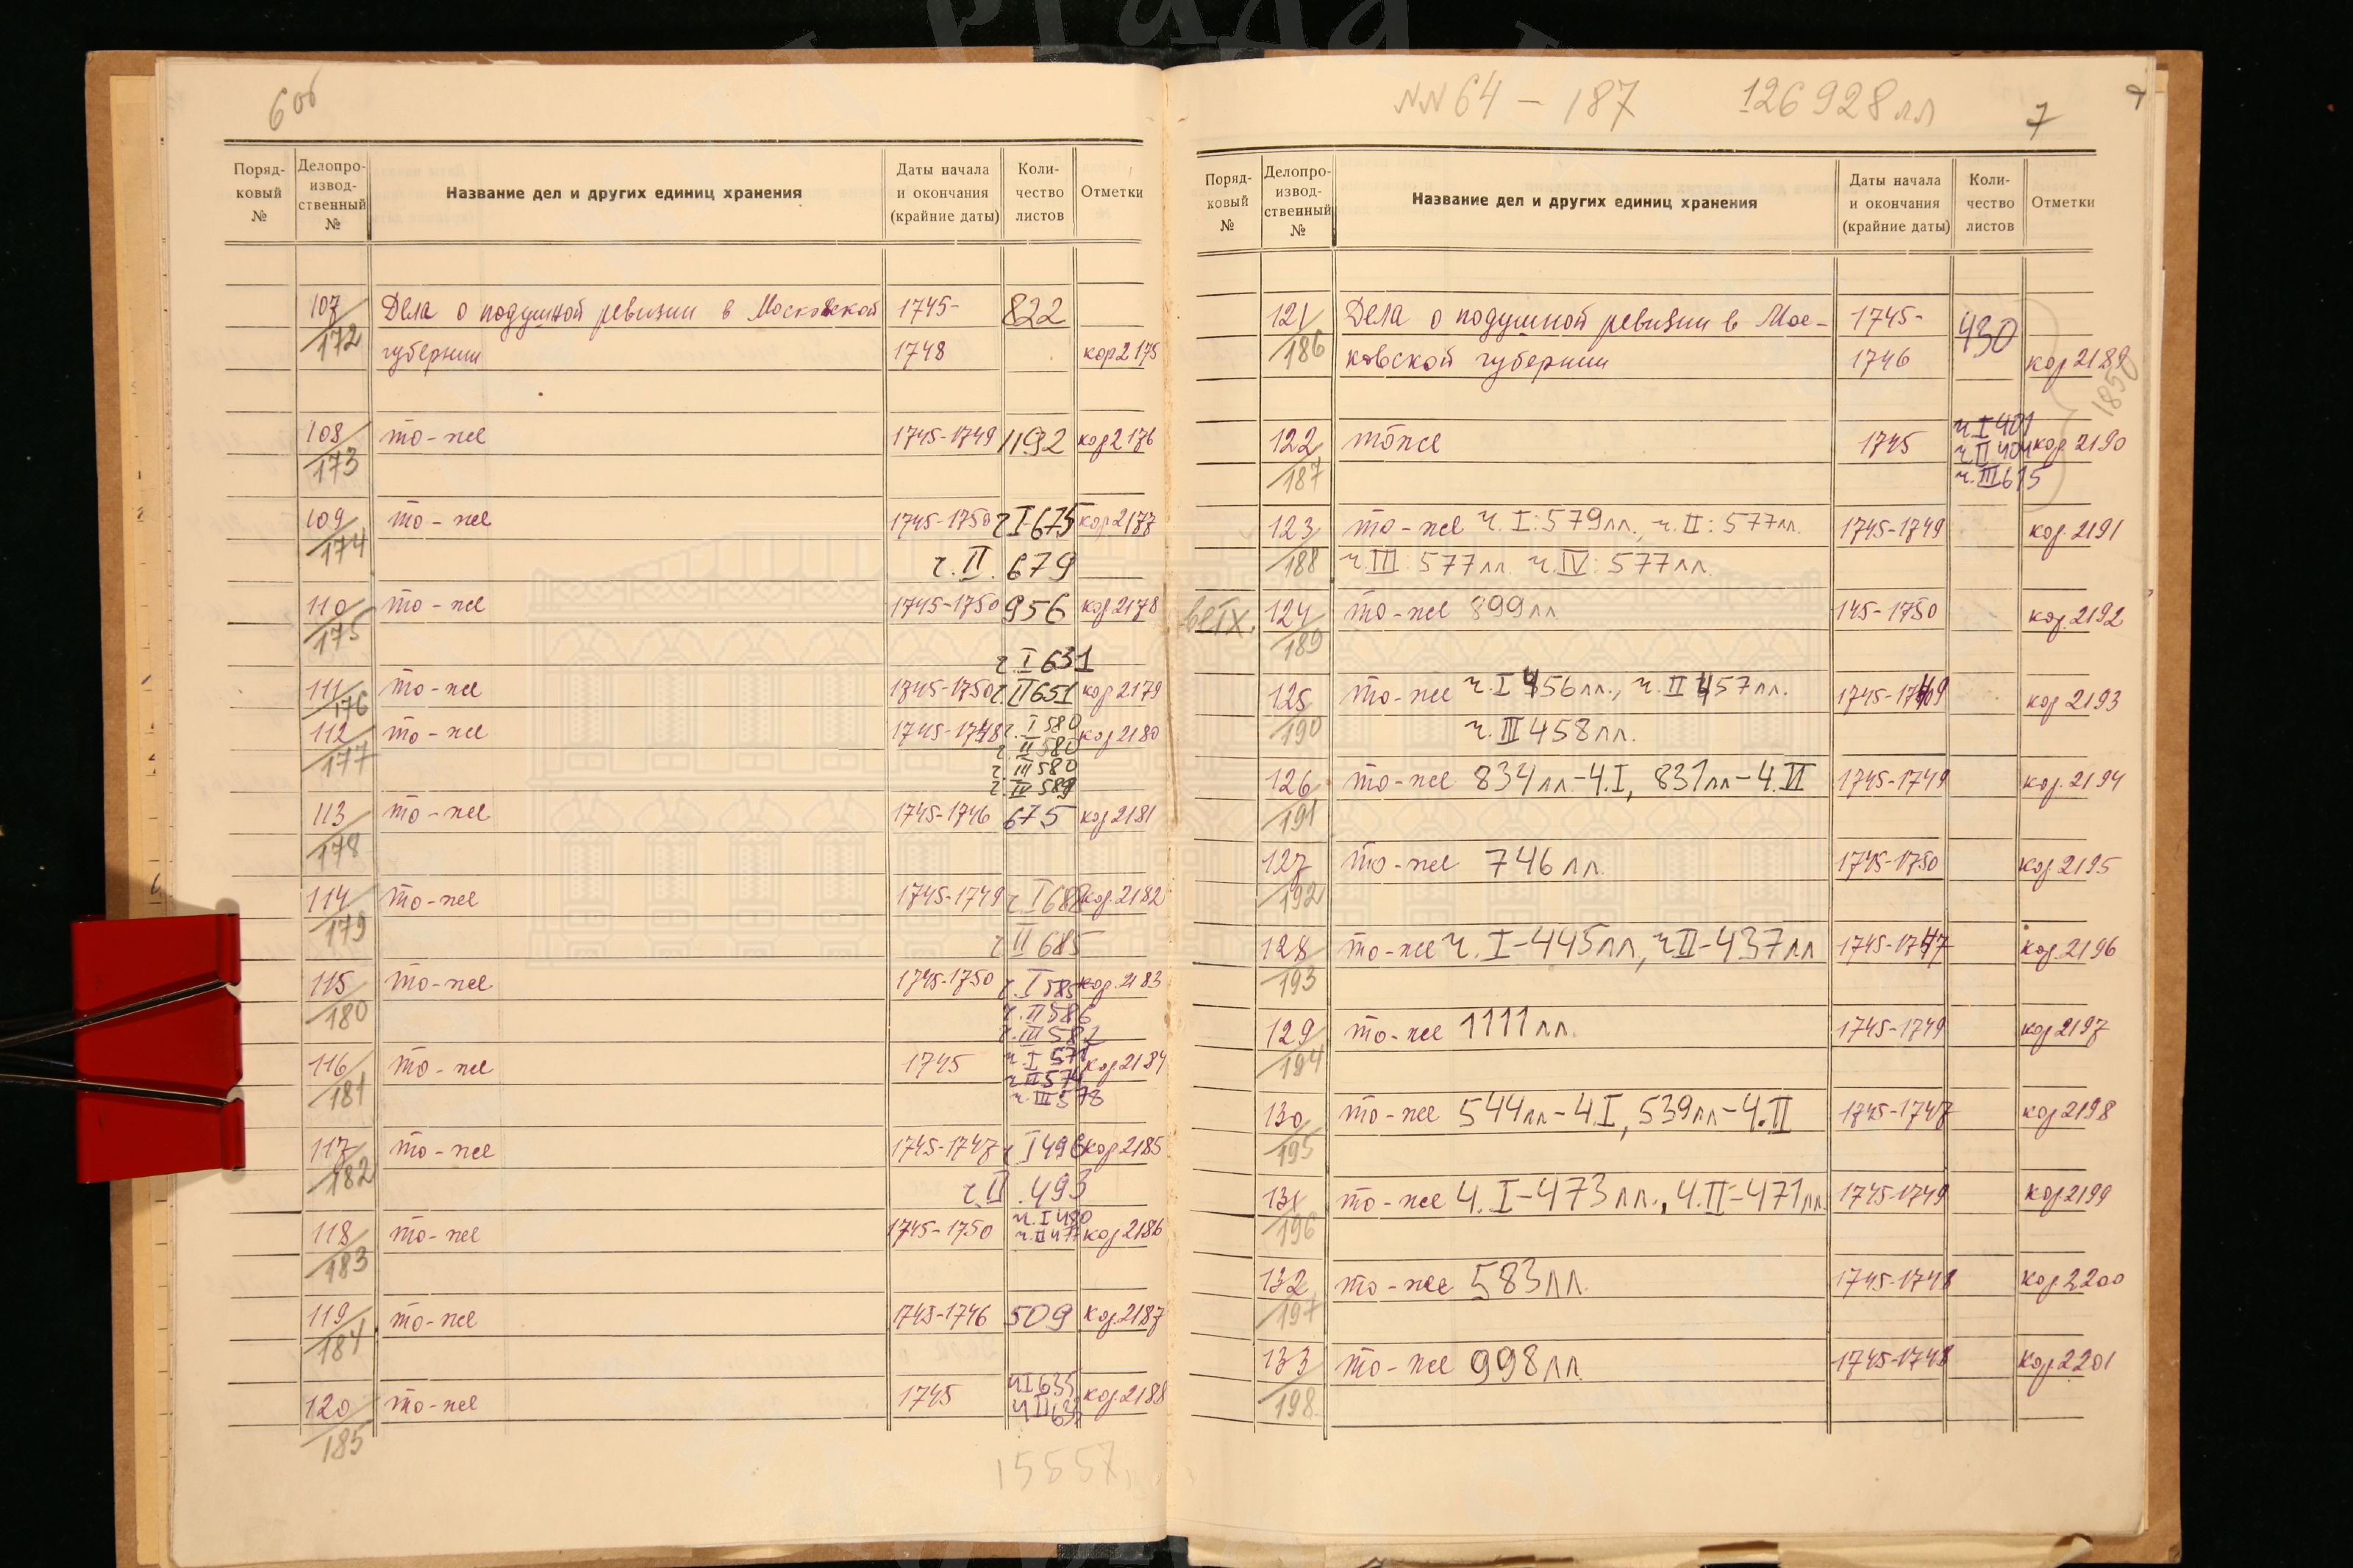 6об
Поряд-
ковый
№
Делопро-
извод-
ственный
№
Название дел и других единиц хранения
Даты начала
и окончания
(крайние даты)
Коли-
чество
листов
Отметки
107/172 Дела о подушной ревизии в Московской 1745- 822
губернии 1748 кор2175
108/173 то-же 1745-1749 1192 кор2176
109/174 то-же 1745-1750 ч I 675 кор2177
ч. II. 679
110/175 то-же 1745-1750 956 кор2178
ч. I 631
111/176 то-же 1745-1750 ч. II 651 кор2179
112/177 то-же 1745-1748 ч. I 580 кор2180
ч. II 580
ч. III 580
ч. IV 589
113/178 то-же 1745-1746 675 кор2181
114/179 то-же 1745-1749 ч. I 688 кор.2182
ч II 685
115/180 то-же 1745-1750 ч. I 585 кор.2183
ч. II 586
ч. III 582
116/181 то-же 1745 ч. I 571 кор2184
ч. II 574
ч. III 578
117/182 то-же 1745-1747 ч I 496 кор2185
ч. II. 493
118/183 то-же 1745-1750 ч. I 480 кор2186
ч. II 477
119/184 то-же 1745-1746 509 кор2187
120/185 то-же 1745 ч I 635 кор.2188
ч II
15557
NN 64 - 187 126928лл
7
Поряд-
ковый
№
Делопро-
извод-
ственный
№
Название дел и других единиц хранения
Даты начала
и окончания
(крайние даты)
Коли-
чество
листов
Отметки
121/186 Дела о подушной ревизии в Мос- 1745- 430
ковской губернии 1746 кор2189
1850
122/187 тоже 1745 ч. I 401 кор. 2190
ч. II 404
ч. III 615
123/188 то-же ч. I: 579лл., ч. II: 577лл. 1745-1749 кор.2191
ч. III: 577лл. ч. IV: 577лл.
ветх. 124/189 то-же 899лл 145-1750 кор.2192
125/190 то-же ч. I 456лл., ч. II 457лл. 1745-1749 кор2193
ч. III 458лл.
126/191 то-же 834лл-ч.I, 831лл-ч.II 1745-1749 кор.2194
127/192 то-же 746лл. 1745-1750 кор2195
128/193 то-же ч. I-445лл, ч II-437лл 1745-1747 кор.2196
129/194 то-же 1111лл. 1745-1749 кор2197
130/195 то-же 544лл-ч.I, 539лл-ч.II 1745-1747 кор2198
131/196 то-же ч. I-473лл., ч.II-471лл. 1745-1749 кор2199
132/197 то-же 583лл. 1745-1748 кор.2200
133/198 то-же 998лл. 1745-1748 кор.2201